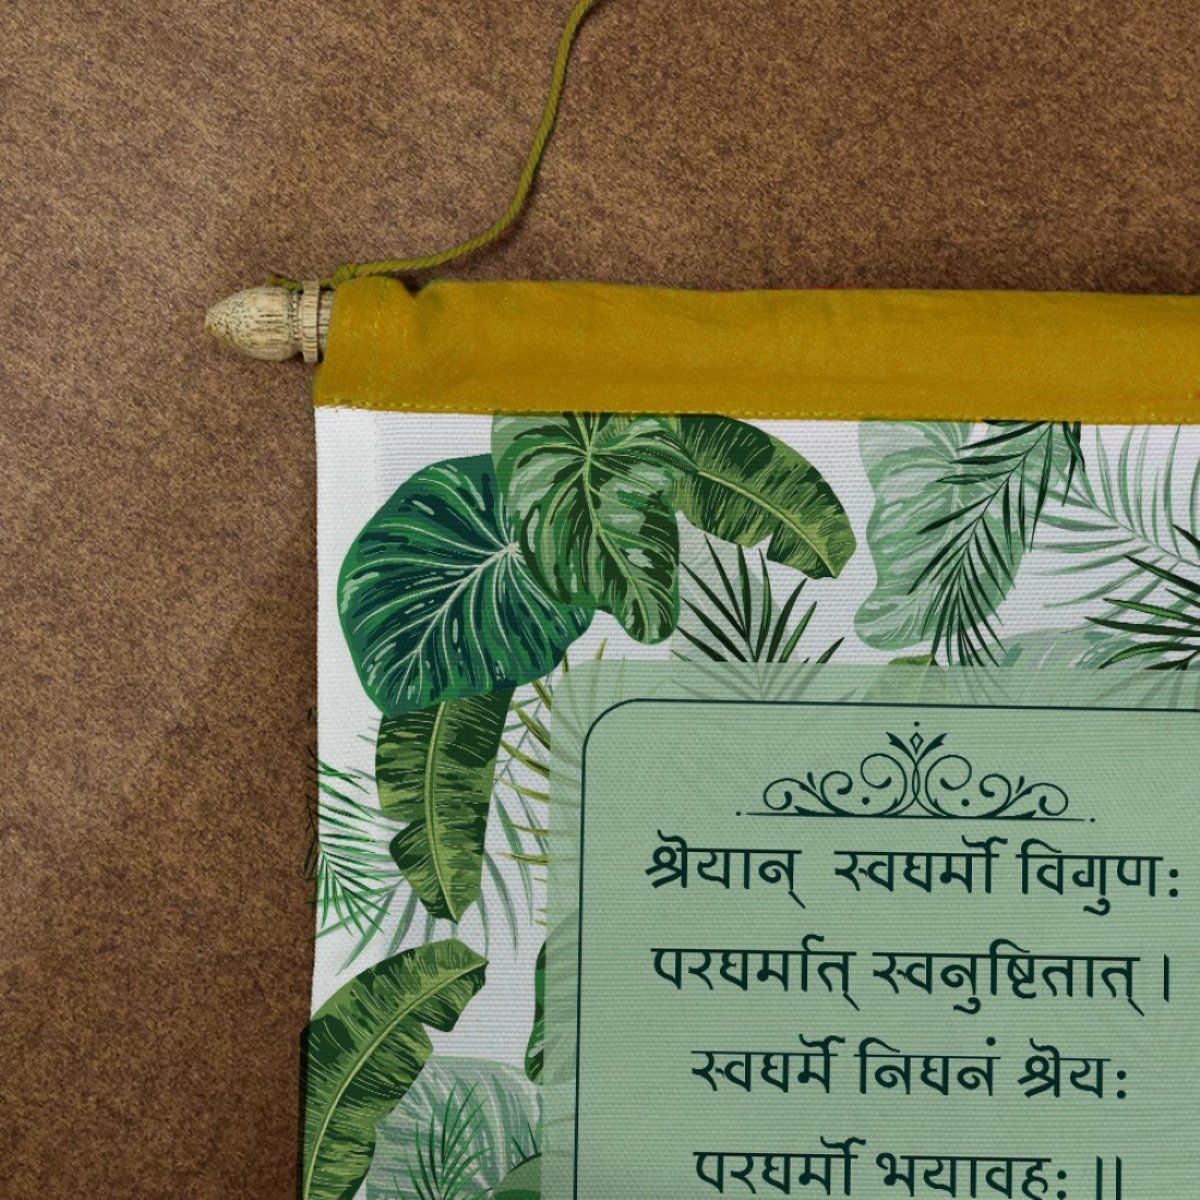 श्रेयान् स्वधर्मो विगुणः
परधर्मात् स्वनुष्टितात् ।
स्वधर्मे निधनं श्रेयः
परधर्मो भयावहः ॥